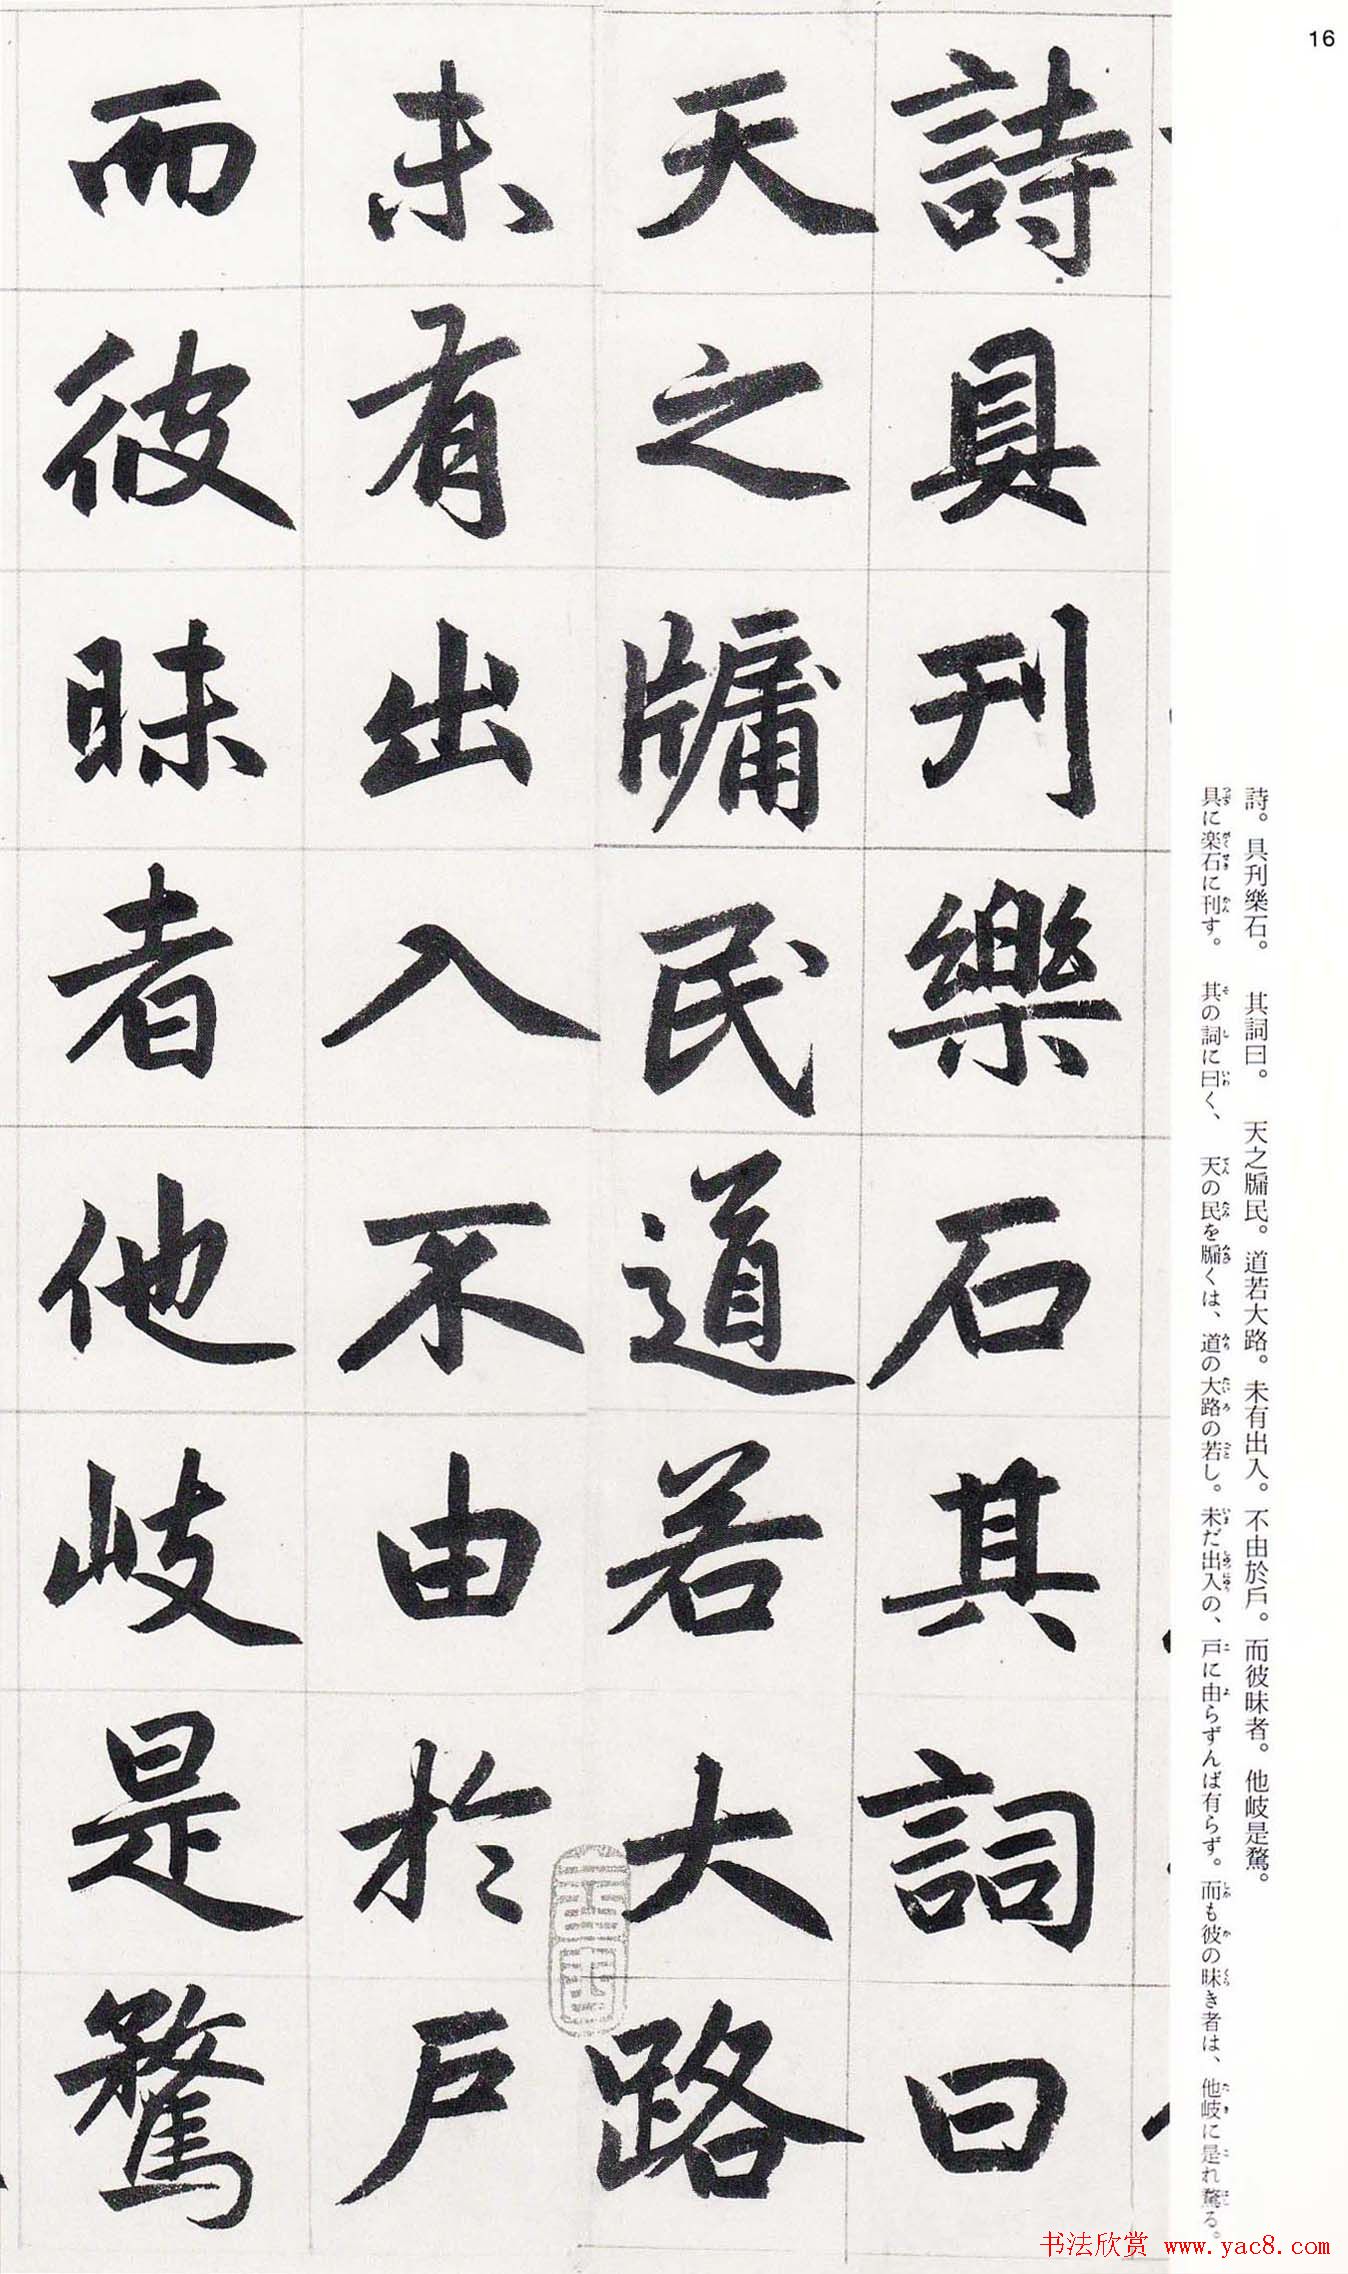 16
詩具刊樂石其詞曰
天之牖民道若大路
未有出入不由於戶
而彼昧者他岐是騖
詩。具刊樂石。 其詞曰。 天之牖民。道若大路。未有出入。不由於戶。而彼昧者。他岐是騖。
具に楽石に刊す。 其の詞に曰く、 天の民を牖くは、道の大路の若し。未だ出入の、戸に由らずんば有らず。而も彼の昧き者は、他岐に是れ騖る。
书法欣赏 www.yac8.com